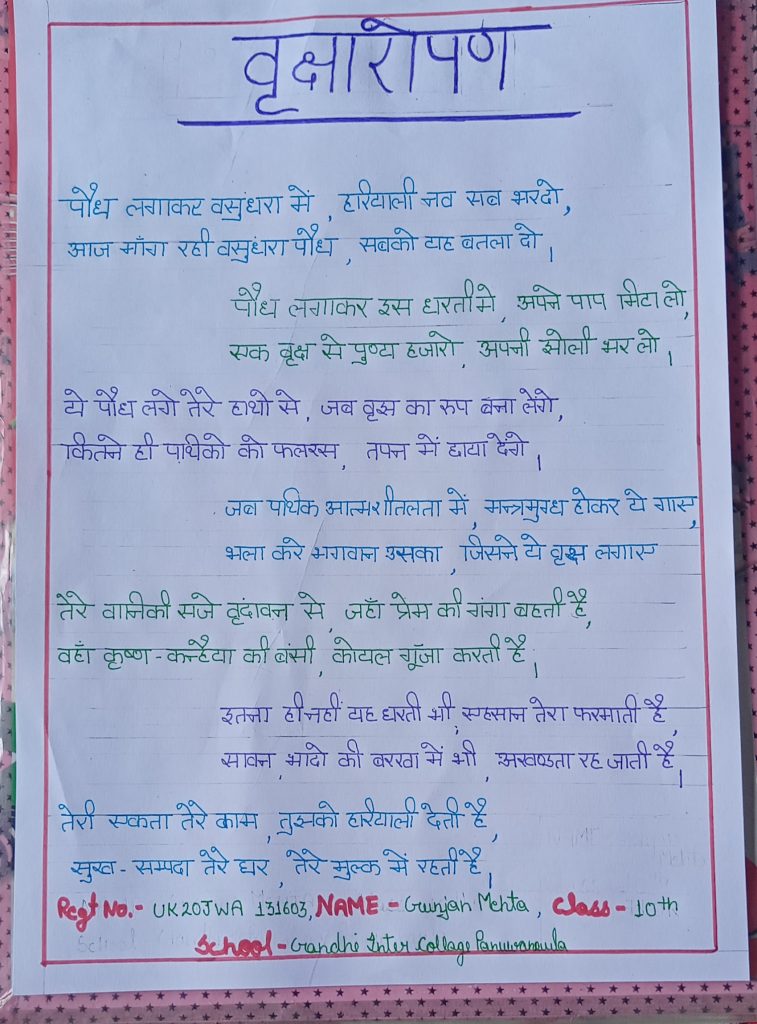 वृक्षारोपण
पौध लगाकर वसुंधरा में, हरियाली नव सब भरदो,
आज माँग रही वसुंधरा पौध, सबको यह बतला दो।
पौध लगाकर इस धरती मे, अपने पाप मिटा लो,
एक वृक्ष से पुण्य हजारो, अपनी झोली भर लो।
ये पौध लगे तेरे हाथो से, जब वृक्ष का रुप बना लेंगे,
कितने ही पथिको को फलरस, तपन में छाया देंगे।
जब पथिक आत्मशीतलता में, मन्त्रमुग्ध होकर ये गाए,
भला करे भगवान उसका, जिसने ये वृक्ष लगाए
तेरे वानिकी सजे वृंदावन से, जहाँ प्रेम की गंगा बहती है,
वहाँ कृष्ण-कन्हैया की बंसी, कोयल गूँजा करती है।
इतना ही नहीं यह धरती भी, एहसान तेरा फरमाती है,
सावन, भादो की बरखा में भी, अखण्डता रह जाती है।
तेरी एकता तेरे काम, तुझको हरियाली देती है,
सुख-सम्पदा तेरे घर, तेरे मुल्क में रहती है।
Regt No.- UK20JWA 131603, NAME - Gunjan Mehta, Class - 10th
School - Gandhi Inter College Panuwanaula